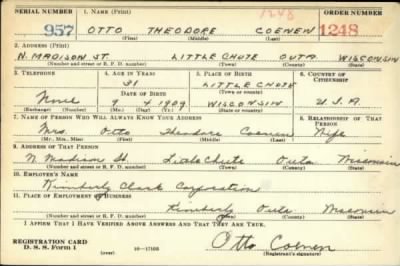 SERIAL NUMBER 1. NAME (Print) 1248 ORDER NUMBER
957 OTTO THEODORE COENEN 1248
(First) (Middle) (Last)
2. ADDRESS (Print)
N. MADISON ST. LITTLE CHUTE OUTA WISCONSIN
(Number and street or R. F. D. number) (Town) (County) (State)
3. TELEPHONE 4. AGE IN YEARS 5. PLACE OF BIRTH 6. COUNTRY OF CITIZENSHIP
31 LITTLE CHUTE
DATE OF BIRTH (Town or county)
None 9 4 1909 WISCONSIN U.S.A.
(Exchange) (Number) (Mo.) (Day) (Yr.) (State or country)
7. NAME OF PERSON WHO WILL ALWAYS KNOW YOUR ADDRESS 8. RELATIONSHIP OF THAT PERSON
Mrs. Otto Theodore Coenen Wife
(Mr., Mrs., Miss) (First) (Middle) (Last)
9. ADDRESS OF THAT PERSON
N. Madison St. Little Chute Outa Wisconsin
(Number and street or R. F. D. number) (Town) (County) (State)
10. EMPLOYER'S NAME
Kimberly Clark Corporation
11. PLACE OF EMPLOYMENT OR BUSINESS
Kimberly Outa Wisconsin
(Number and street or R. F. D. number) (Town) (County) (State)
I AFFIRM THAT I HAVE VERIFIED ABOVE ANSWERS AND THAT THEY ARE TRUE.
Otto Coenen
REGISTRATION CARD
D. S. S. Form 1 (over) 16—17105 (Registrant's signature)